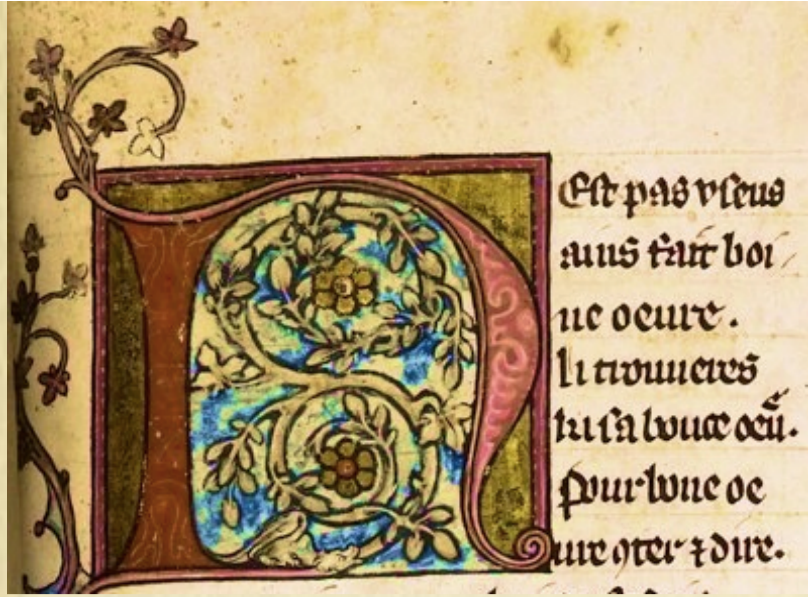 N Est pas vseus
ains fait boi
ne oeure.
li trouueres
ki sa bouce oeu̾.
Pour bone oe
ure ꝯter ⁊ dire.